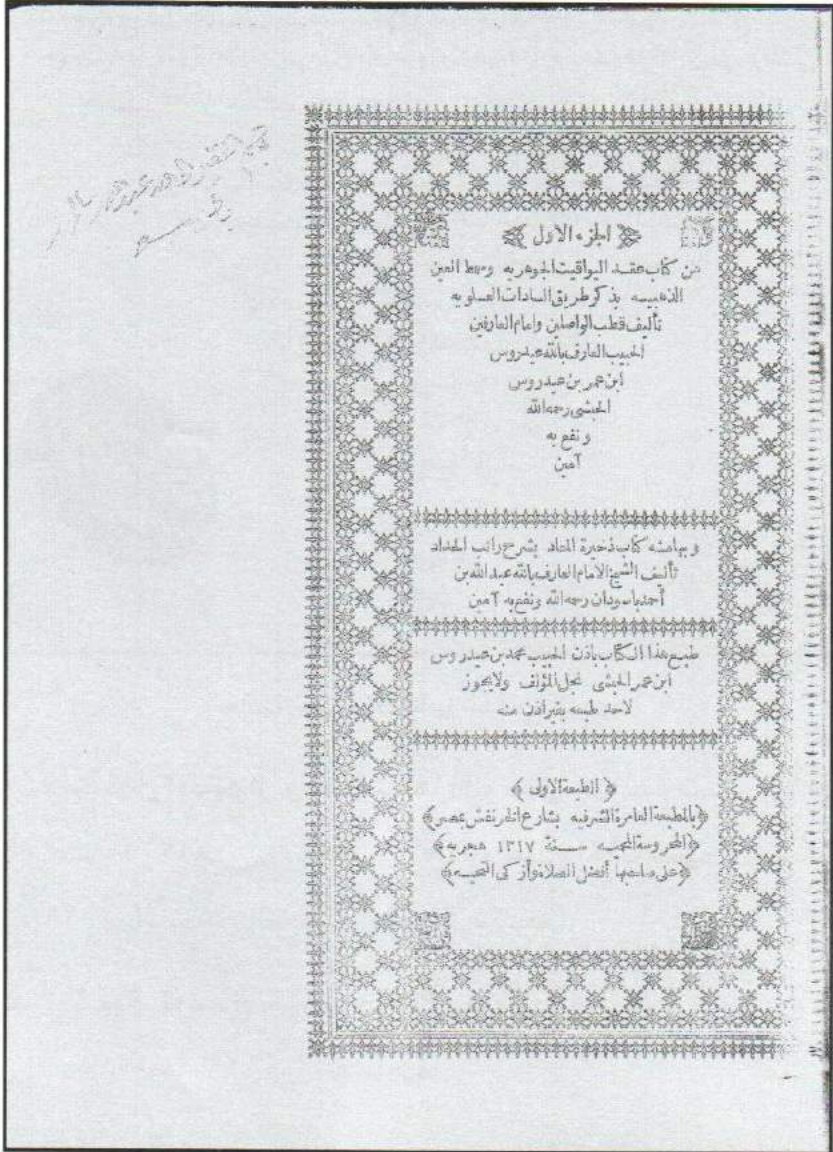 الجزء الاول
من كتاب عقد اليواقيت الجوهريه وسمط العين
الذهبيسه بذكر طريق السادات العلويه
تأليف قطب الواصلين وامام العارفين
الحبيب العارف بالله عيدروس
ابن عمر بن عيدروس
الحبشى رحمه الله
ونفع به
آمين
وبهامشه كتاب ذخيرة المعاد بشرح راتب الحداد
تأليف الشيخ الامام العارف بالله عبد الله بن
أحمد باسودان رحمه الله ونفع به آمين
طبع هذا الكتاب باذن الحبيب محمد بن عيدروس
ابن عمر الحبشى نجل المؤلف ولا يجوز
لاحد طبعه بغير اذن منه
﴿ الطبعة الاولى ﴾
﴿بالمطبعة العامرة الشرفيه بشارع الخرنفش بمصر﴾
﴿المحروسة المحميه سنة ١٣١٧ هجريه﴾
﴿على صاحبها أفضل الصلاة وأزكى التحيه﴾